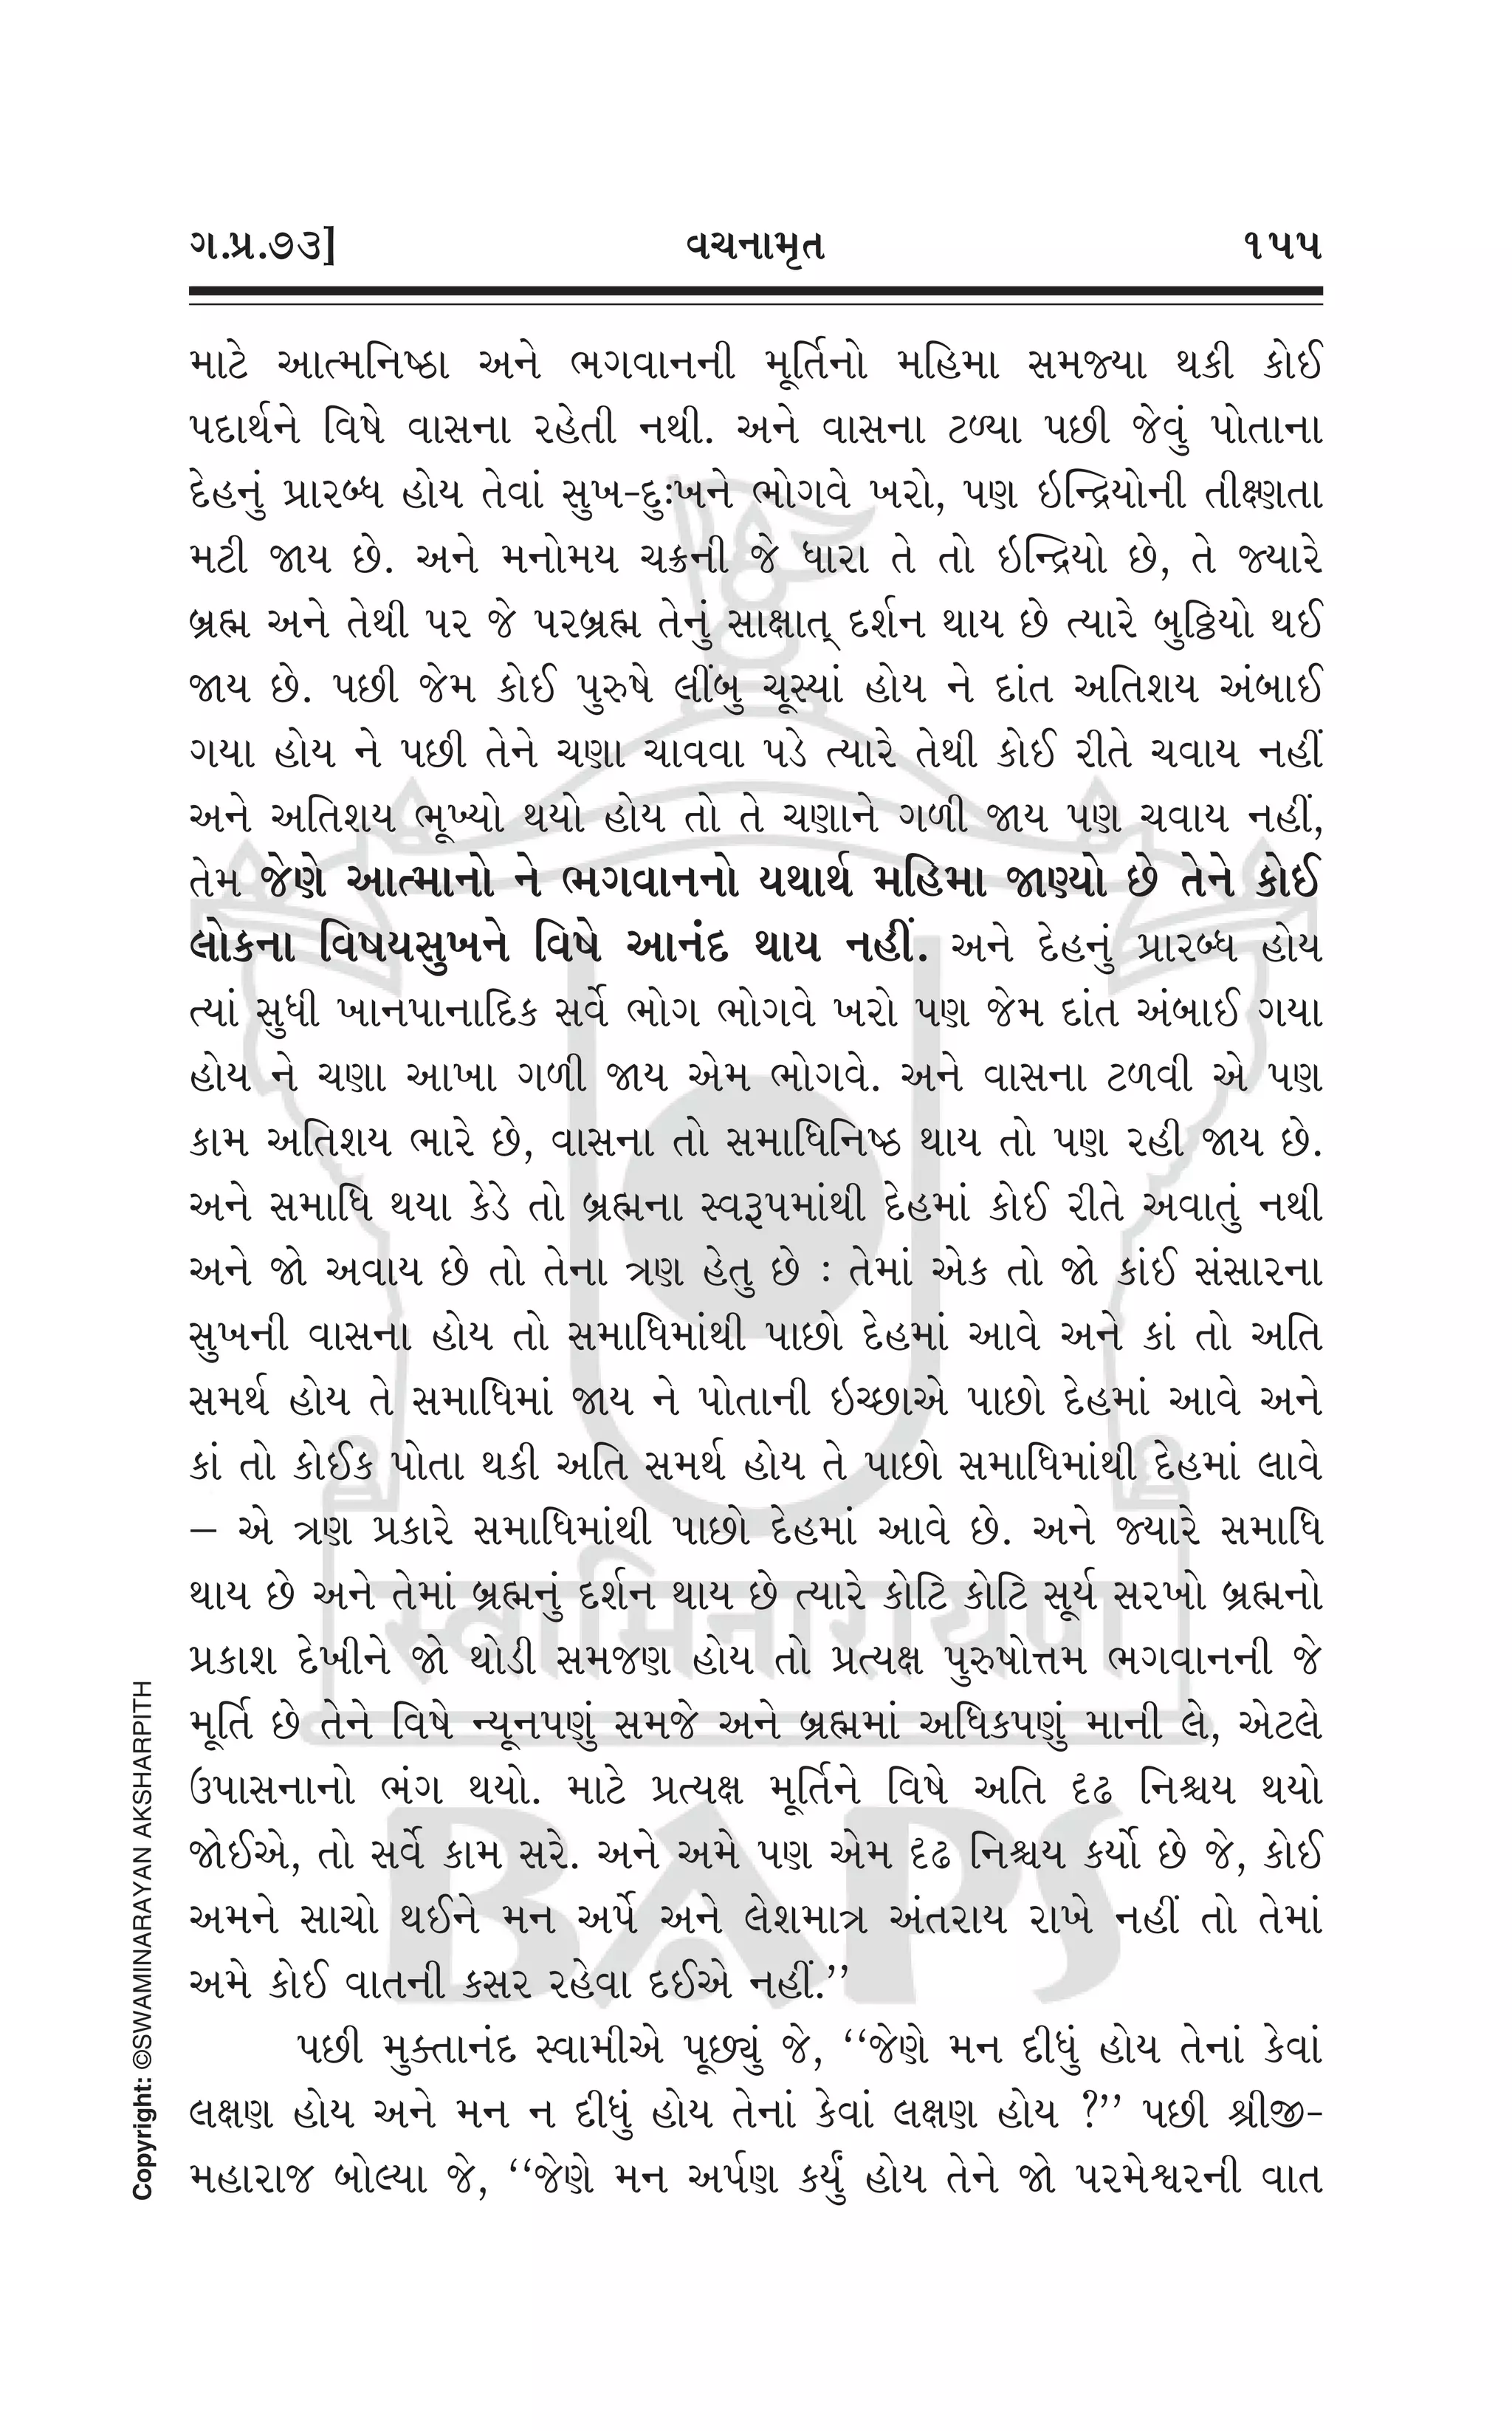 ગ.પ્ર.૭૩] વચનામૃત ૧૫૫
માટે આત્મનિષ્ઠા અને ભગવાનની મૂર્તિનો મહિમા સમજ્યા થકી કોઈ
પદાર્થને વિષે વાસના રહેતી નથી. અને વાસના ટળ્યા પછી જેવું પોતાના
દેહનું પ્રારબ્ધ હોય તેવાં સુખ-દુઃખને ભોગવે ખરો, પણ ઇન્દ્રિયોની તીક્ષ્ણતા
મટી જાય છે. અને મનોમય ચક્રની જે ધારા તે તો ઇન્દ્રિયો છે, તે જ્યારે
બ્રહ્મ અને તેથી પર જે પરબ્રહ્મ તેનું સાક્ષાત્ દર્શન થાય છે ત્યારે બુઠ્ઠિયો થઈ
જાય છે. પછી જેમ કોઈ પુરુષે લીંબુ ચૂસ્યાં હોય ને દાંત અતિશય અંબાઈ
ગયા હોય ને પછી તેને ચણા ચાવવા પડે ત્યારે તેથી કોઈ રીતે ચવાય નહીં
અને અતિશય ભૂખ્યો થયો હોય તો તે ચણાને ગળી જાય પણ ચવાય નહીં,
તેમ જેણે આત્માનો ને ભગવાનનો યથાર્થ મહિમા જાણ્યો છે તેને કોઈ
લોકના વિષયસુખને વિષે આનંદ થાય નહીં. અને દેહનું પ્રારબ્ધ હોય
ત્યાં સુધી ખાનપાનાદિક સર્વે ભોગ ભોગવે ખરો પણ જેમ દાંત અંબાઈ ગયા
હોય ને ચણા આખા ગળી જાય એમ ભોગવે. અને વાસના ટળવી એ પણ
કામ અતિશય ભારે છે, વાસના તો સમાધિનિષ્ઠ થાય તો પણ રહી જાય છે.
અને સમાધિ થયા કેડે તો બ્રહ્મના સ્વરૂપમાંથી દેહમાં કોઈ રીતે અવાતું નથી
અને જો અવાય છે તો તેના ત્રણ હેતુ છે : તેમાં એક તો જો કાંઈ સંસારના
સુખની વાસના હોય તો સમાધિમાંથી પાછો દેહમાં આવે અને કાં તો અતિ
સમર્થ હોય તે સમાધિમાં જાય ને પોતાની ઇચ્છાએ પાછો દેહમાં આવે અને
કાં તો કોઈક પોતા થકી અતિ સમર્થ હોય તે પાછો સમાધિમાંથી દેહમાં લાવે
– એ ત્રણ પ્રકારે સમાધિમાંથી પાછો દેહમાં આવે છે. અને જ્યારે સમાધિ
થાય છે અને તેમાં બ્રહ્મનું દર્શન થાય છે ત્યારે કોટિ કોટિ સૂર્ય સરખો બ્રહ્મનો
પ્રકાશ દેખીને જો થોડી સમજણ હોય તો પ્રત્યક્ષ પુરુષોત્તમ ભગવાનની જે
મૂર્તિ છે તેને વિષે ન્યૂનપણું સમજે અને બ્રહ્મમાં અધિકપણું માની લે, એટલે
ઉપાસનાનો ભંગ થયો. માટે પ્રત્યક્ષ મૂર્તિને વિષે અતિ દૃઢ નિશ્ચય થયો
જોઈએ, તો સર્વે કામ સરે. અને અમે પણ એમ દૃઢ નિશ્ચય કર્યો છે જે, કોઈ
અમને સાચો થઈને મન અર્પે અને લેશમાત્ર અંતરાય રાખે નહીં તો તેમાં
અમે કોઈ વાતની કસર રહેવા દઈએ નહીં.’’
પછી મુક્તાનંદ સ્વામીએ પૂછ્યું જે, ‘‘જેણે મન દીધું હોય તેનાં કેવાં
લક્ષણ હોય અને મન ન દીધું હોય તેનાં કેવાં લક્ષણ હોય ?’’ પછી શ્રીજી-
મહારાજ બોલ્યા જે, ‘‘જેણે મન અર્પણ કર્યું હોય તેને જો પરમેશ્વરની વાત
Copyright: ©SWAMINARAYAN AKSHARPITH
स्वामिनारायण
BAPS